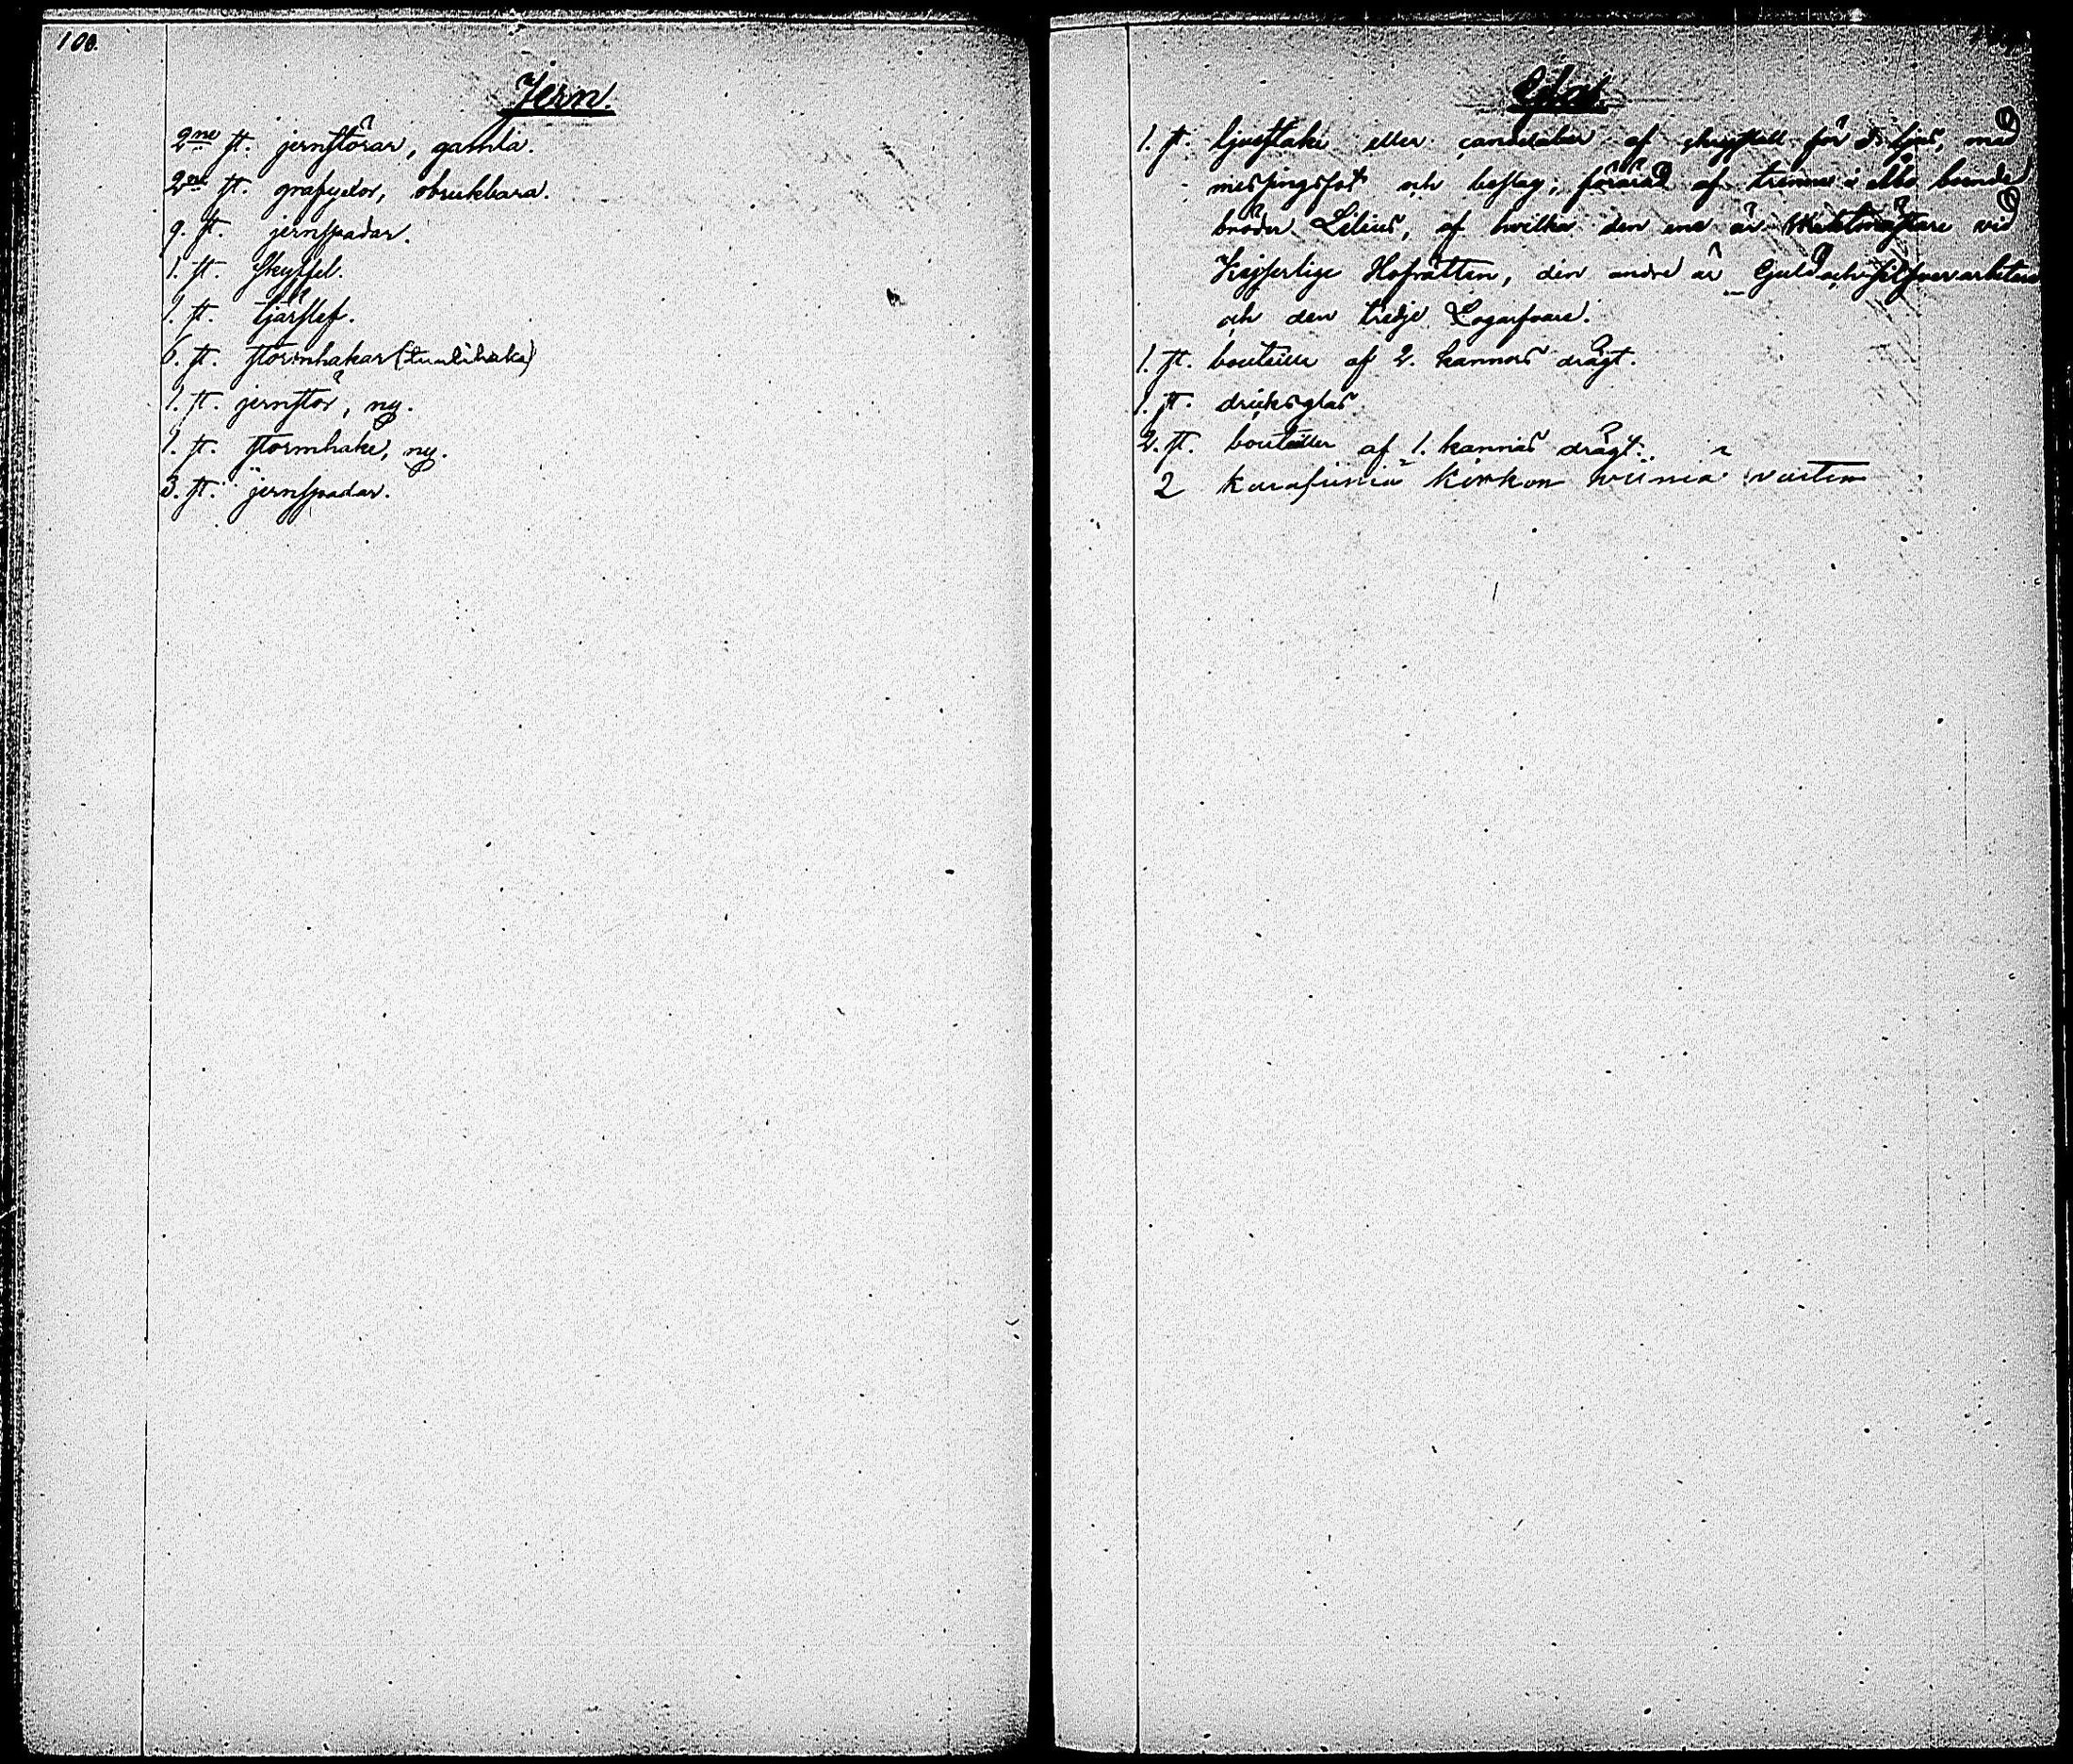 100.
Jern.
2ne st. jernstörar, gamla.
2ne st. grafyxor, obrukbara.
9. st. jernspadar.
1. st. skyffel.
1. st. tjärslef.
6. st. stormhakar (tuulihaka)
1. st. jernstör, ny.
1. st. stormhake, ny.
3. st. jernspadar.
Glas.
1. st. ljusstake eller candelaber af chrystall för ljus, med
messingsfot och beslag, förärad af trenne i Åbo boende
bröder Lilius, af hvilka den ena är Vaktmästare vid
Kejserlige Hofrätten, den andre är Guld och Silfverarbetare
och den tredje Logarfvare.
1. st. bouteille af 2. kannors drägt.
1. st. dricksglas
2. st. bouteiller af 1. kannas drägt.
2 karafiinia kirkon viiniä varten